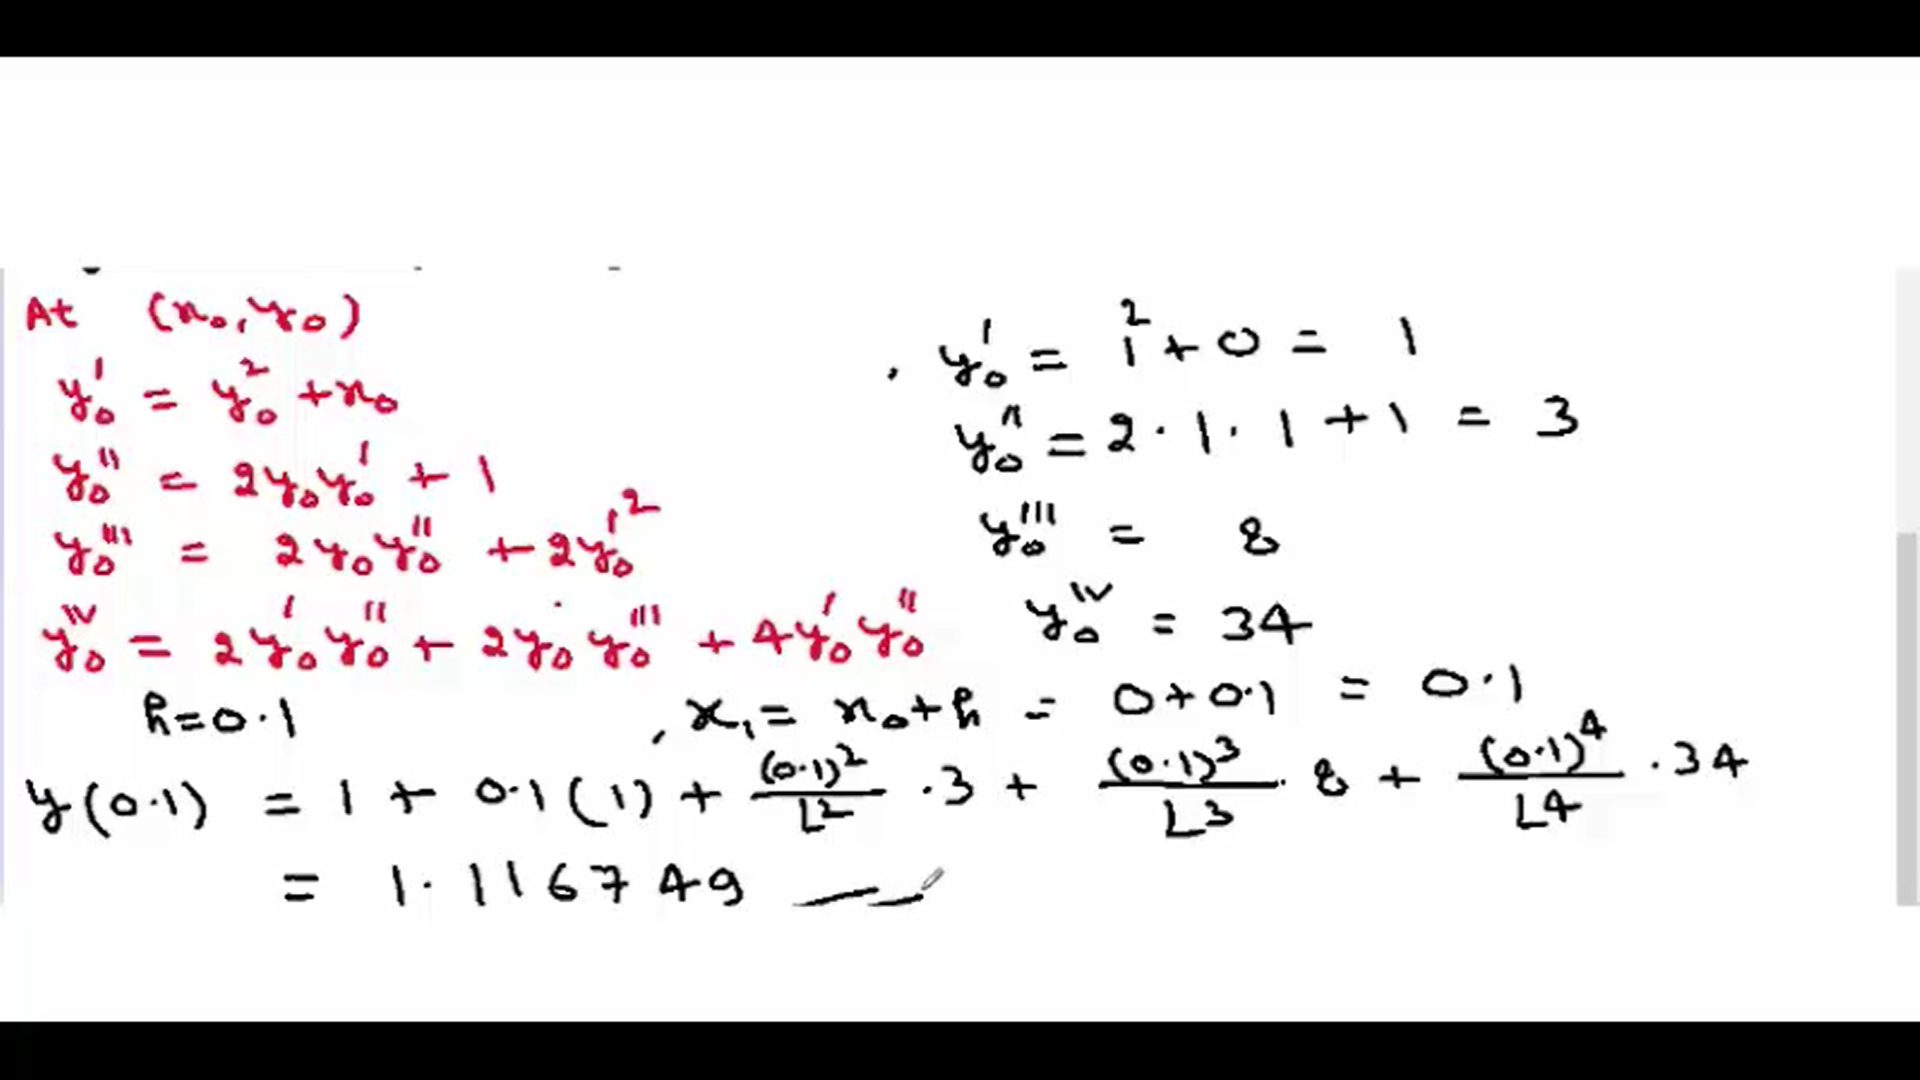 At (x₀, y₀)
y₀' = y₀² + x₀
y₀'' = 2y₀y₀' + 1
y₀''' = 2y₀y₀'' + 2y₀'²
y₀ⁱᵛ = 2y₀'y₀'' + 2y₀y₀''' + 4y₀'y₀''
y₀' = 1² + 0 = 1
y₀'' = 2·1·1 + 1 = 3
y₀''' = 8
y₀ⁱᵛ = 34
h = 0.1 , x₁ = x₀ + h = 0 + 0.1 = 0.1
y(0.1) = 1 + 0.1(1) + (0.1)²/∟2 · 3 + (0.1)³/∟3 · 8 + (0.1)⁴/∟4 · 34
= 1.116749